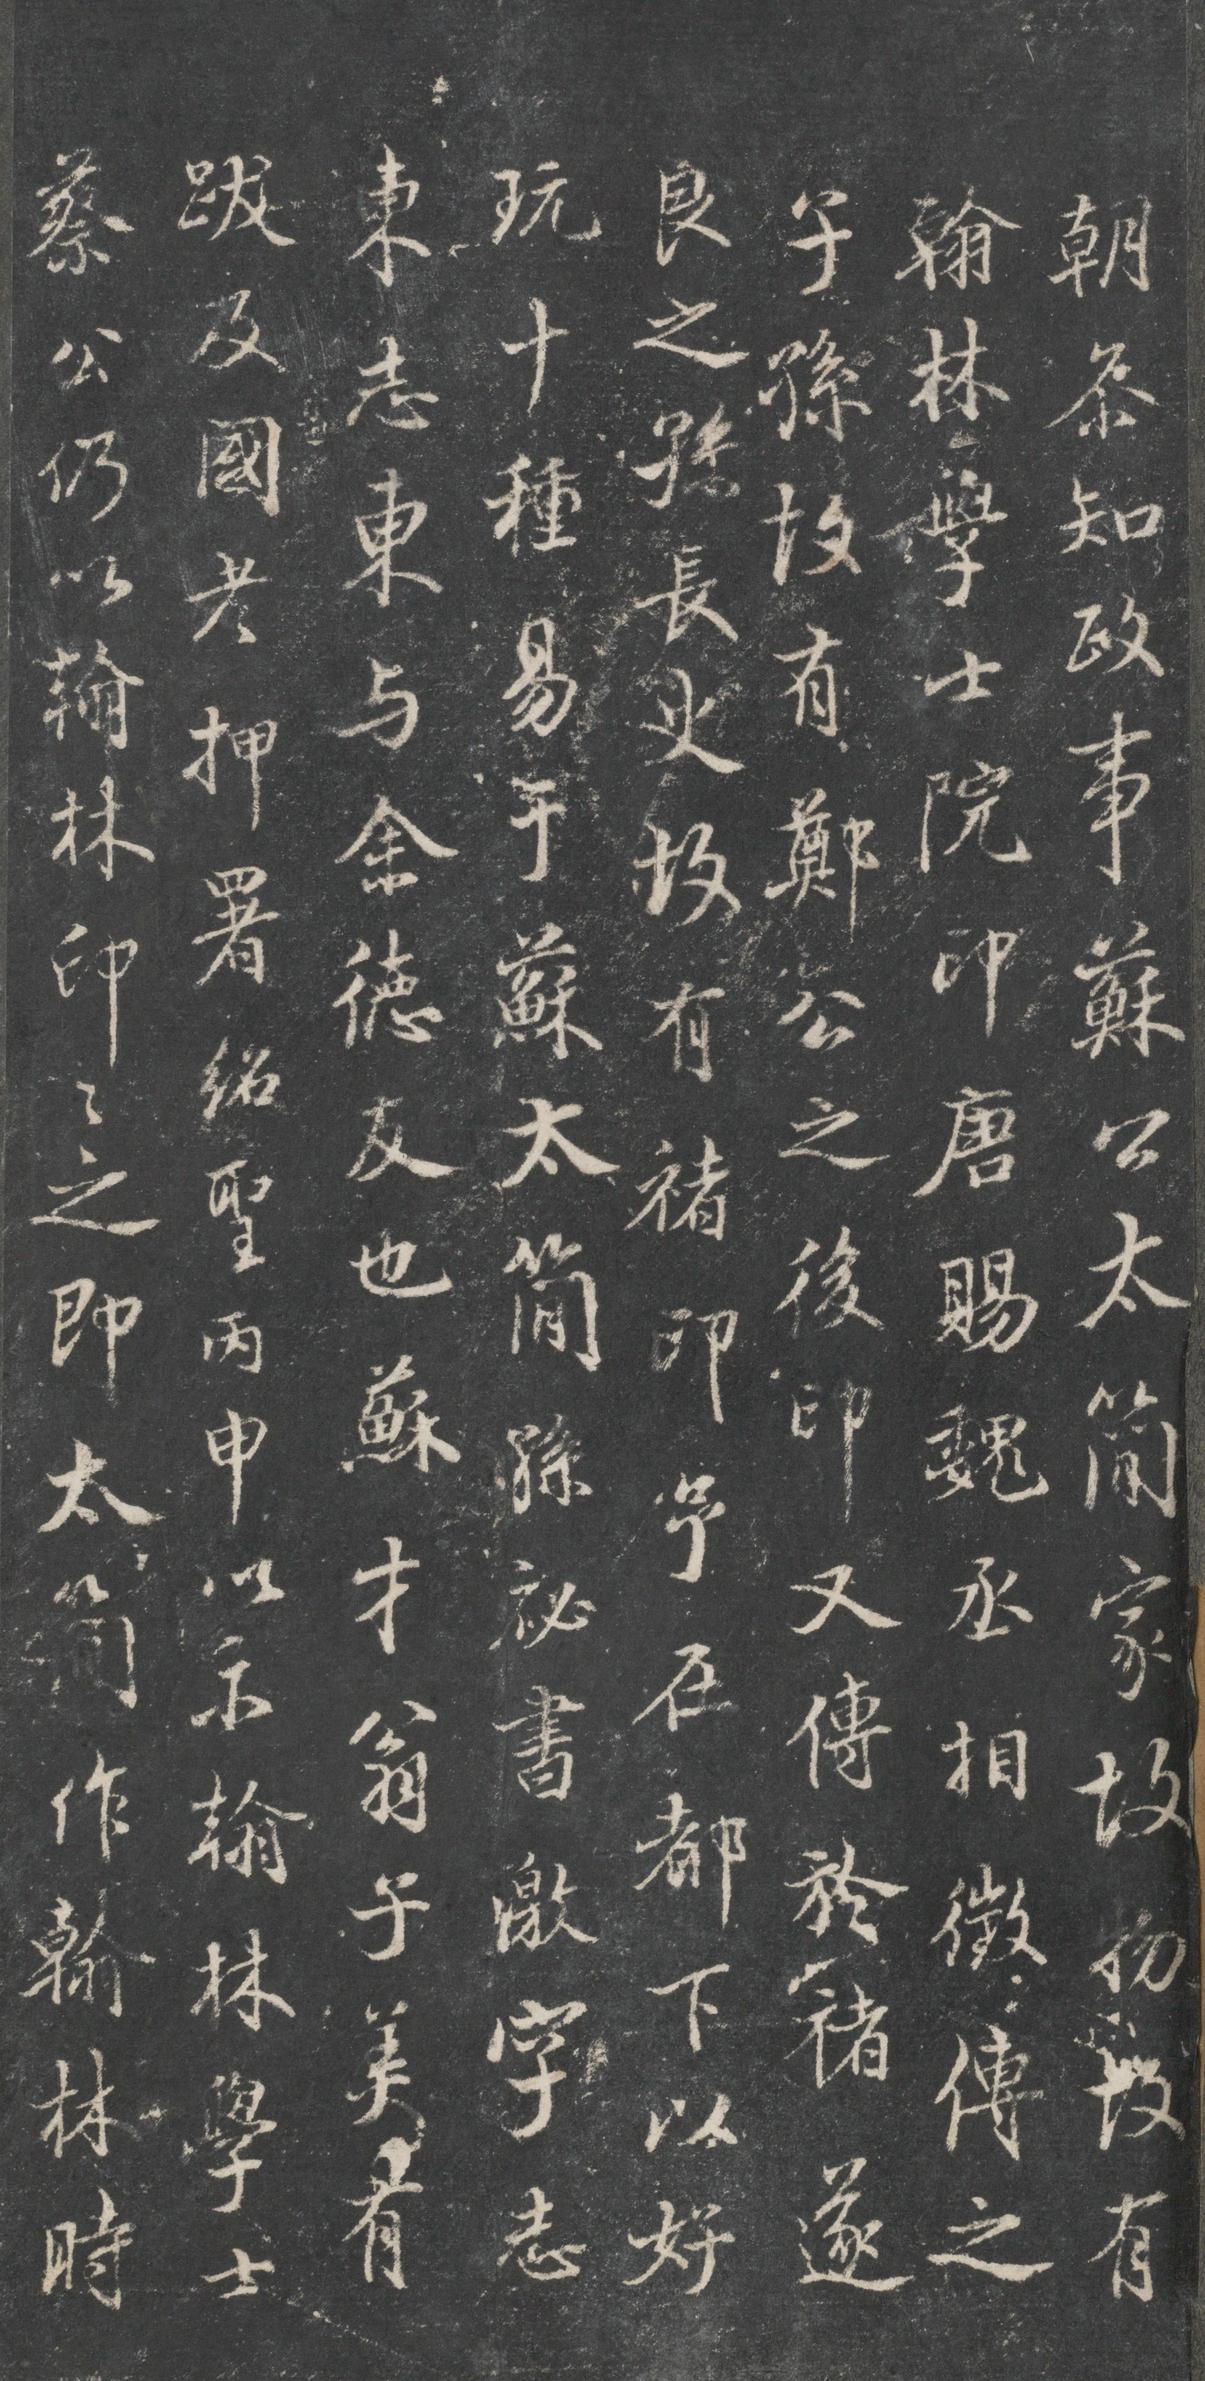 朝叅知政事蘇公太簡家故物故有
翰林學士院印唐賜魏丞相徵傳之
子孫故有鄭公之後印又傳於褚遂
良之孫長史故有褚印予在都下以好
玩十種易于蘇太簡孫祕書激字志
東志東与余德友也蘇才翁子美有
跋及國老押署紹聖丙申以示翰林學士
蔡公仍以翰林印之之即太簡作翰林時